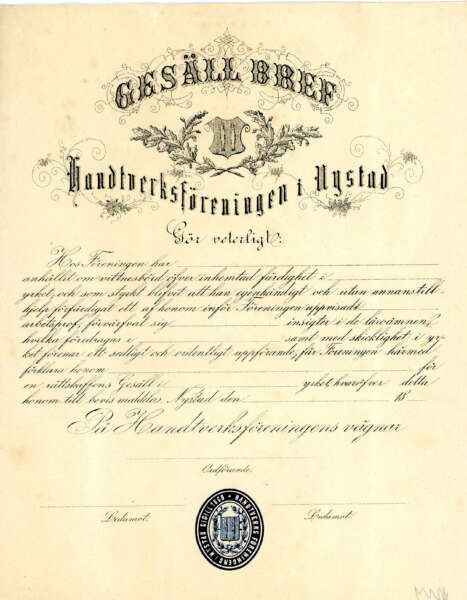 GESÄLL BREF
Handtverksföreningen i Nystad
Gör veterligt:
Hos Föreningen har
anhållit om vittnesbörd öfver inhemtad färdighet i
yrket, och som styrkt blifvit att han egenhändigt och utan annans till-
hjelp förfärdigat ett af honom inför Föreningen uppvisadt
arbetsprof, förvärfvat sig insigter i de läroämnen,
hvilka föredragas i samt med skicklighet i yr-
ket förenar ett sedligt och ordentligt uppförande, får Föreningen härmed
förklara honom för
en rättskaffens Gesäll i yrket, hvaröfver detta
honom till bevis meddelas. Nystad den 18
På Handtverksföreningens vägnar
Ordförande.
Ledamot. Ledamot.
HANDTVERKS FÖRENINGENS I NYSTAD SIGILL 1868